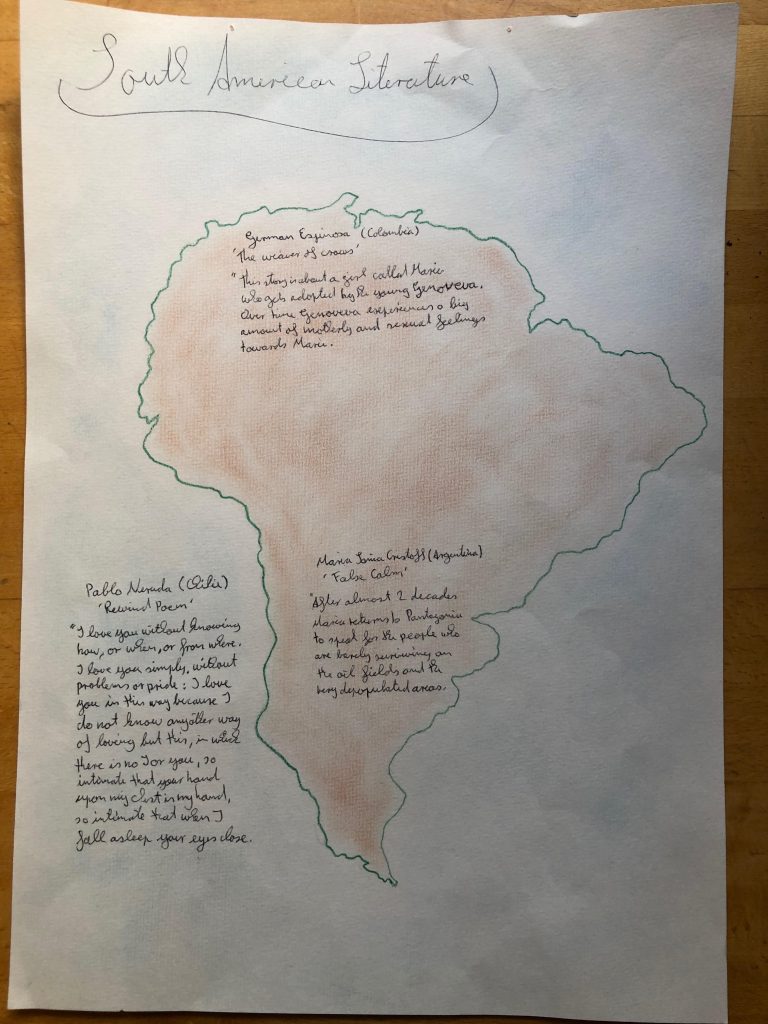 South American Literature
German Espinosa (Colombia)
'The weaver of crowns'
"This story is about a girl called Marie
who gets adopted by the young Genoveva.
Over time Genoveva experiences a big
amount of motherly and sexual feelings
towards Marie.
Maria Sonia Cristoff (Argentina)
'False Calm'
"After almost 2 decades
Maria returns to Pantagonia
to speat for the people who
are barely surviving on
the oil fields and the
very depopulated areas.
Pablo Neruda (Chile)
'Rewind Poem'
"I love you without knowing
how, or when, or from where.
I love you simply, without
problems or pride: I love
you in this way because I
do not know any other way
of loving but this, in which
there is no I or you, so
intimate that your hand
upon my chest is my hand,
so intimate that when I
fall asleep your eyes close.